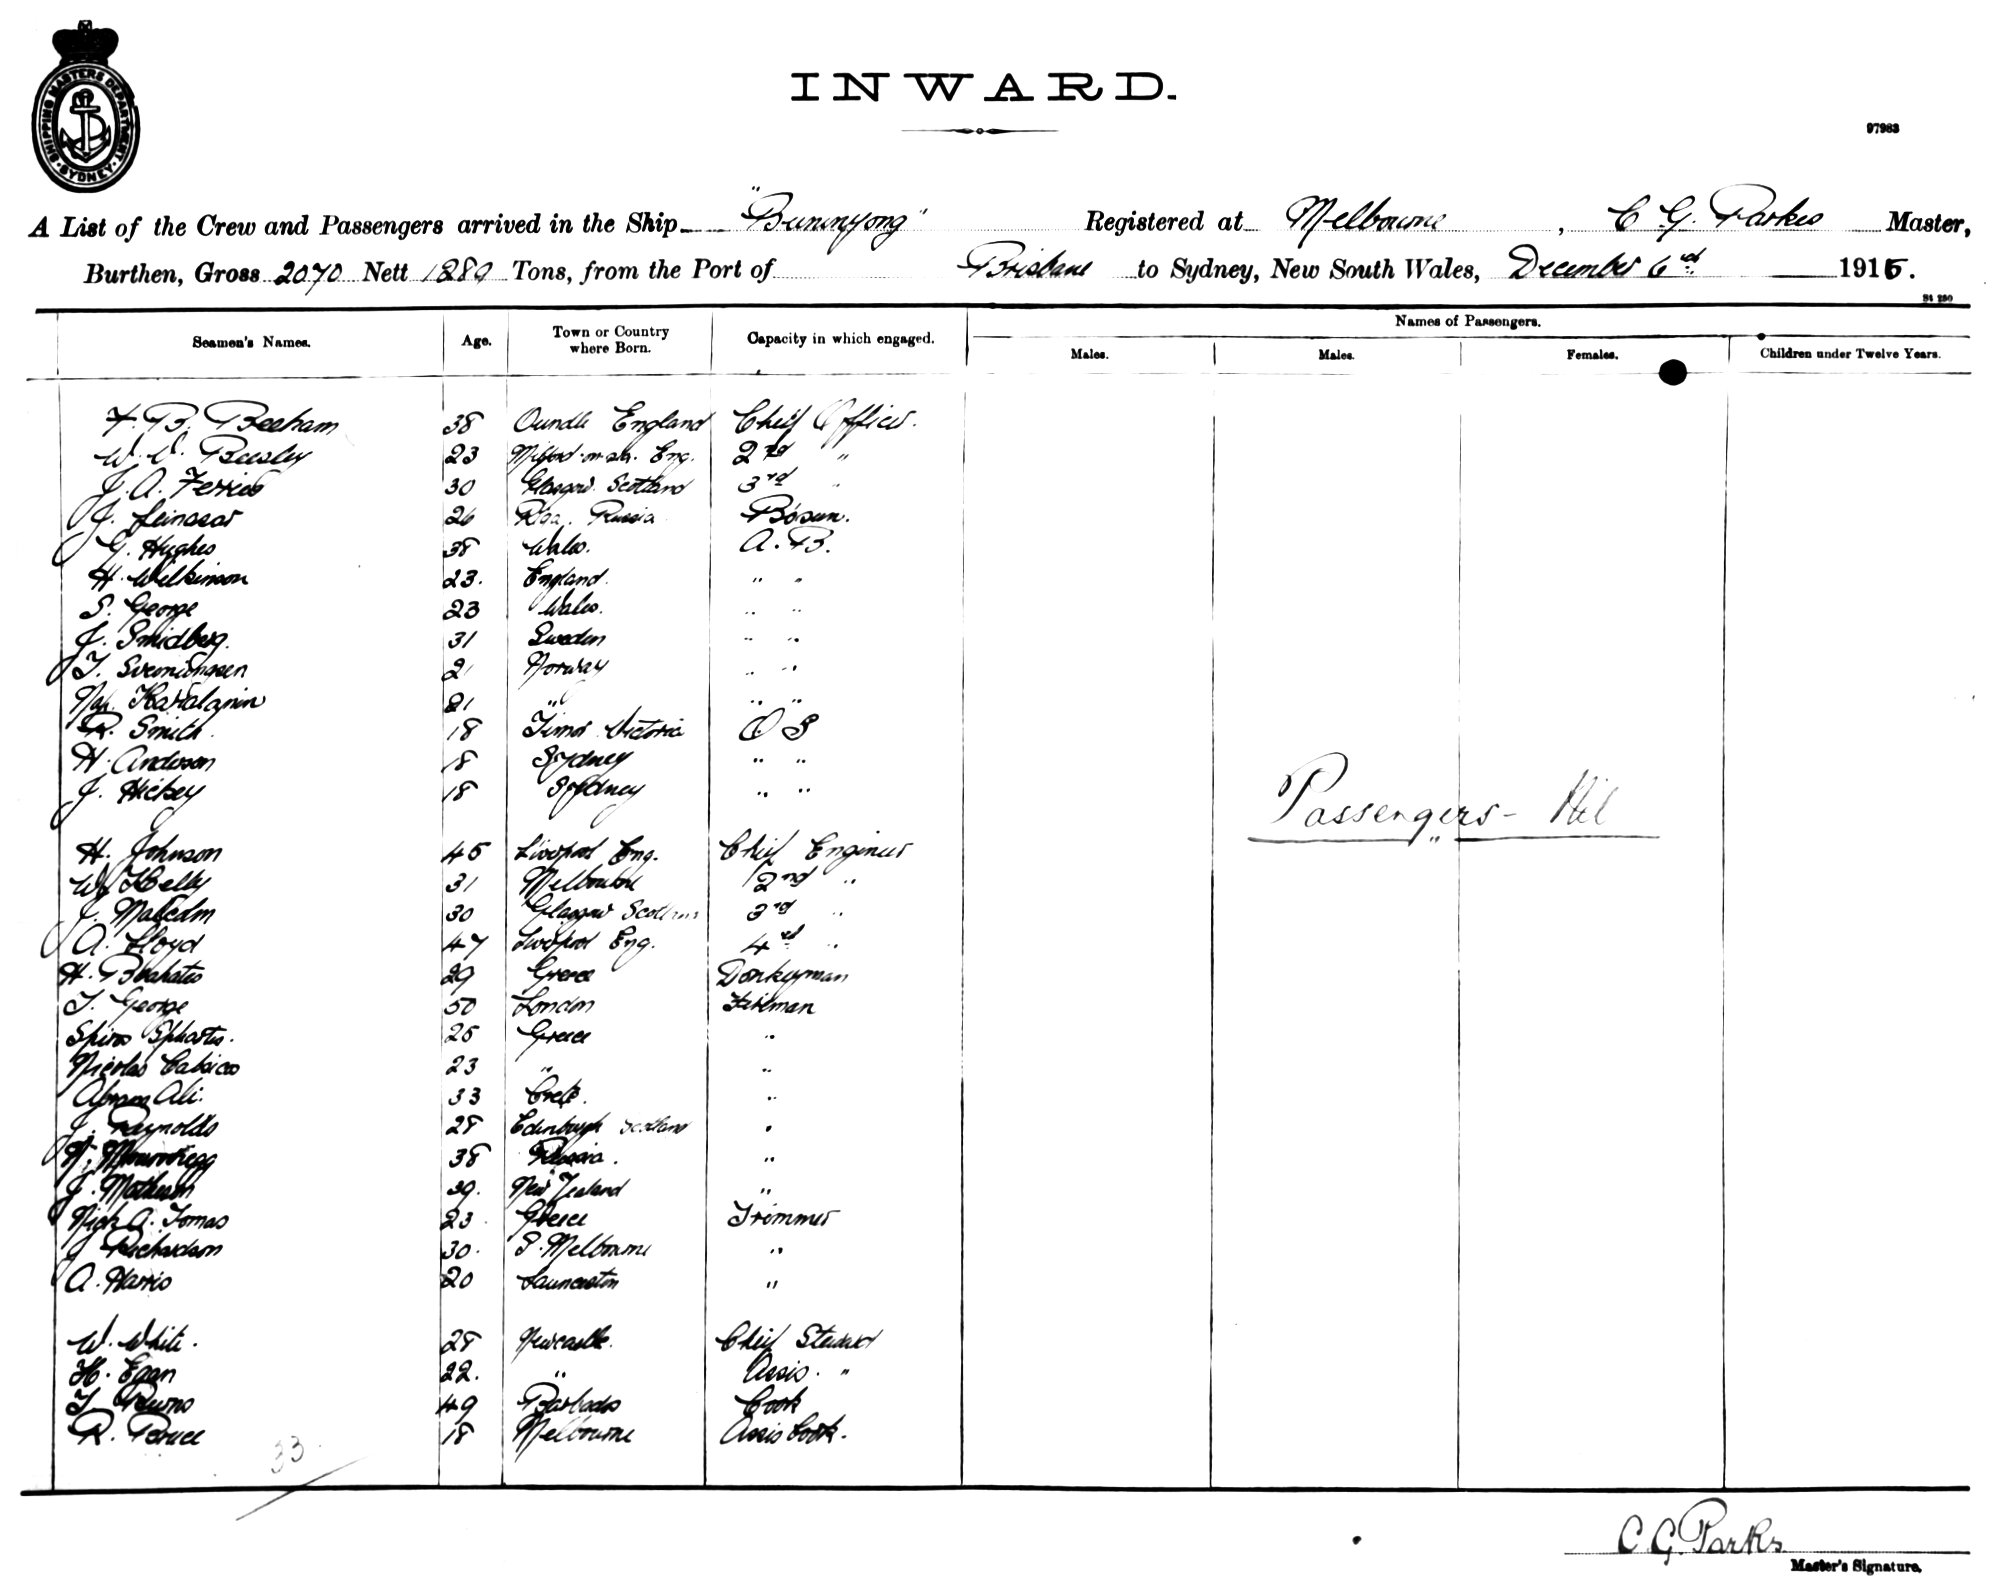 SHIPPING MASTERS DEPARTMENT · SYDNEY ·
INWARD.
97983
A List of the Crew and Passengers arrived in the Ship "Buninyong" Registered at Melbourne, C. G. Parkes Master,
Burthen, Gross 2070 Nett Tons, from the Port of Brisbane to Sydney, New South Wales, December 6 1915.
St 250
Seamen's Names. Age. Town or Country where Born. Capacity in which engaged. Names of Passengers.
Males. Males. Females. Children under Twelve Years.
F. B. Beeham 38 Oundle England Chief Officer.
Beesley 23 Milford-on-sea. Eng. 2nd "
J. A. Ferries 30 Glasgow. Scotland 3rd "
J. Leinasar 26 Riga. Russia Bosun.
G. Hughes 38 Wales. A. B.
H. Wilkinson 23. England " "
S. George 23 Wales. " "
J. Smidberg. 31 Sweden " "
T. 21 Norway " "
21 " " "
R. Smith 18 Timor Victoria O S
H. Anderson 18 Sydney " "
J. Hickey 18 Sydney " "
Passengers - Nil
H. Johnson 45 Liverpool Eng. Chief Engineer
W. Kelly 31 Melbourne 2nd "
J. Malcolm 30 Glasgow Scotland 3rd "
A. Lloyd 47 Liverpool Eng. 4 "
H. 29 Greece Donkeyman
T. George 50 London Fireman
Spiros 25 Greece "
Nicolas 23 " "
Ali. 33 Crete. "
J. Reynolds 28 Edinburgh Scotland "
38 Russia. "
J. Matheson 39. New Zealand "
Nick A. Tomas 23. Greece Trimmer
J Richardson 30. S. Melbourne "
A. Harris 20 Launceston "
W. White. 28 Newcastle. Chief Steward
H. Egan 22. " Assis. "
T. Burns 49 Barbados Cook
R. Peruce 18 Melbourne Assis Cook.
33
C. G. Parkes
Master's Signature.